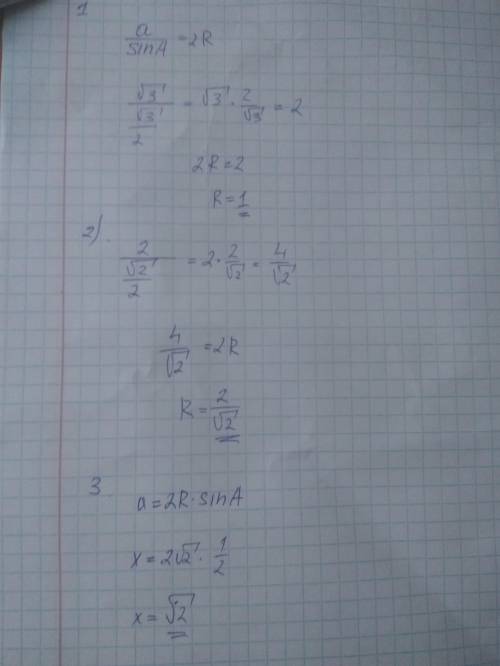 1
a/sinA = 2R
√3/(√3/2) = √3 · 2/√3 = 2
2R = 2
R = 1
2)
2/(√2/2) = 2 · 2/√2 = 4/√2
4/√2 = 2R
R = 2/√2
3
a = 2R · sinA
x = 2√2 · 1/2
x = √2